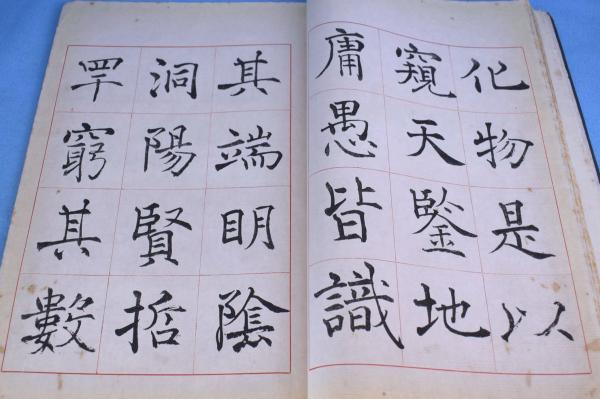 化物是以
窺天鑒地
庸愚皆識
其端明陰
洞陽賢哲
罕窮其數